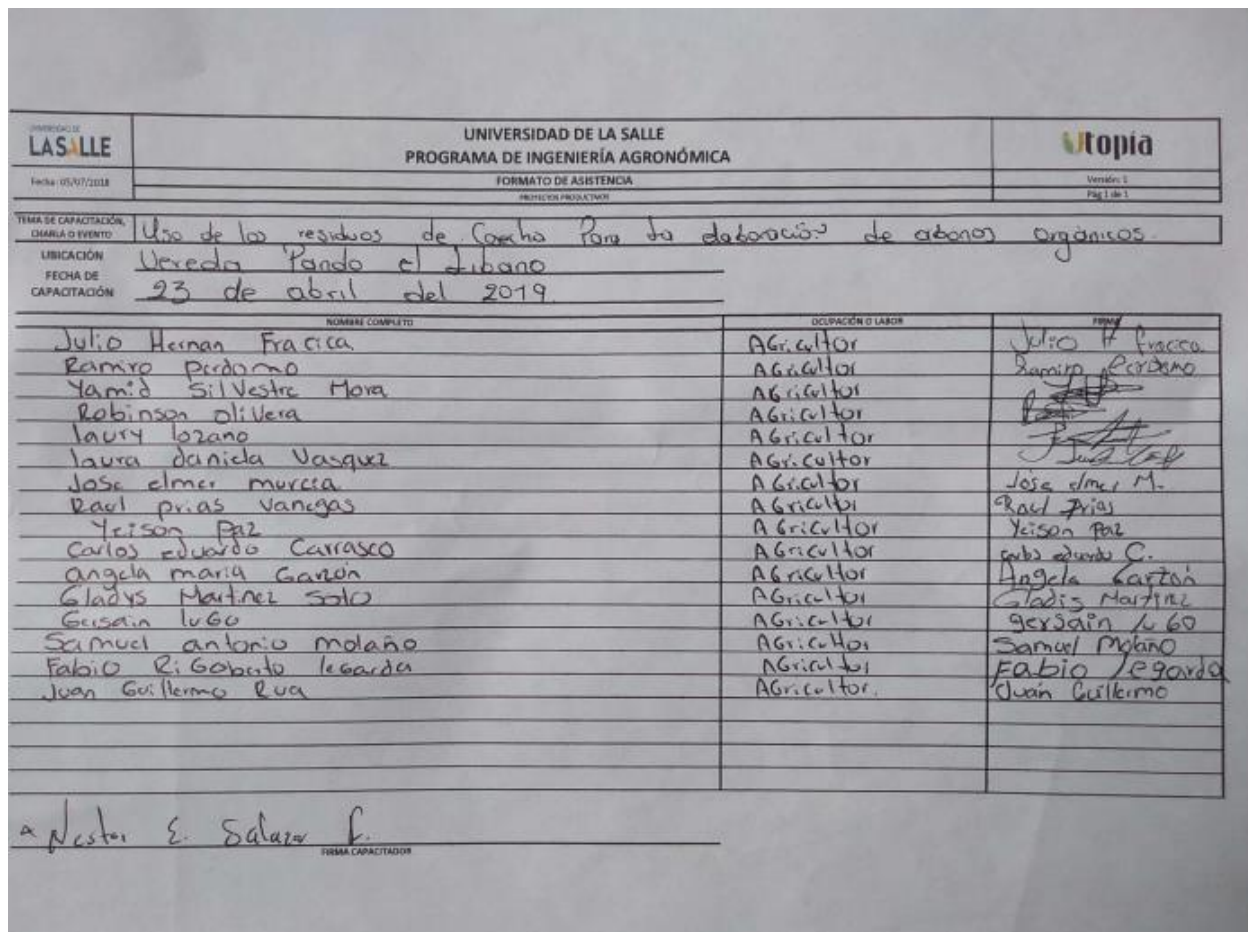 UNIVERSIDAD DE
LASALLE
UNIVERSIDAD DE LA SALLE
PROGRAMA DE INGENIERÍA AGRONÓMICA
Utopía
Fecha: 05/07/2018
FORMATO DE ASISTENCIA
Versión: 1
PROYECTOS PRODUCTIVOS
Pág 1 de 1
TEMA DE CAPACITACIÓN, CHARLA O EVENTO Uso de los residuos de Cosecha Para la elaboración de abonos orgánicos.
UBICACIÓN Vereda Pando el Líbano
FECHA DE CAPACITACIÓN 23 de abril del 2019
NOMBRE COMPLETO OCUPACIÓN O LABOR FIRMA
Julio Hernan Fracica AGricultor Julio H Fracica
Ramiro Perdomo AGricultor Ramiro Perdomo
Yamid SilVestre Mora AGricultor
Robinson oliVera AGricultor
laury lozano AGricultor
laura daniela Vasquez AGricultor
Jose elmer murcia AGricultor Jose elmer M.
Raul prias Vanegas AGricultor Raul Prias
Yeison Paz AGricultor Yeison Paz
Carlos eduardo Carrasco AGricultor Carlos eduardo C.
angela maria Garzón AGricultor Angela Garzón
Gladys Martinez Soto AGricultor Gladis Martinez
Gersain luGo AGricultor gersain luGo
Samuel antonio molaño AGricultor Samuel Molano
Fabio RiGoberto leGarda AGricultor Fabio legarda
Juan Guillermo Rua AGricultor. Juan Guillermo
Nestor E. Salazar
FIRMA CAPACITADOR